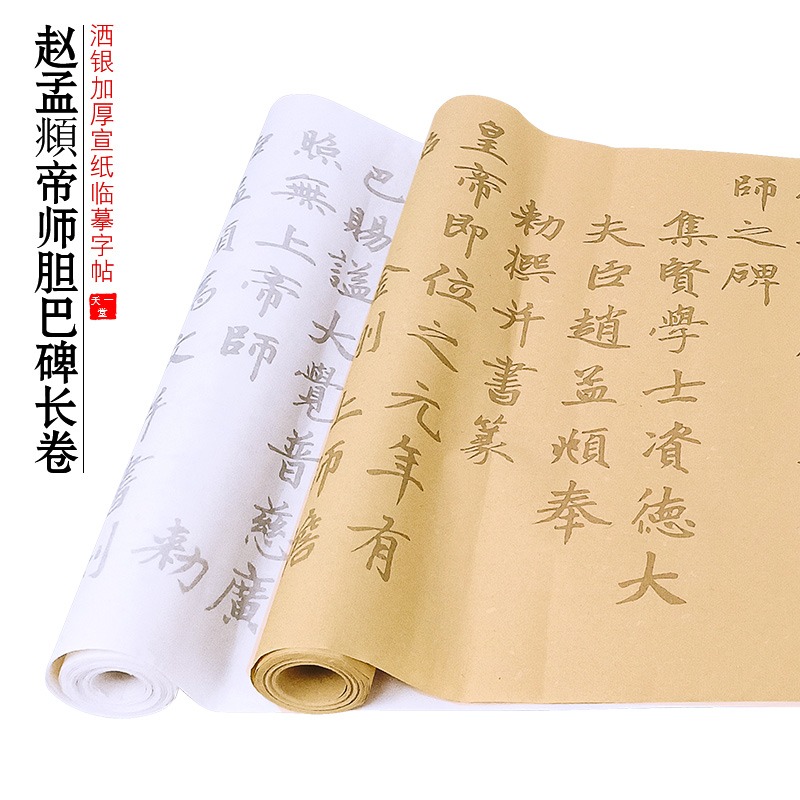 赵孟頫帝师胆巴碑长卷
洒银加厚宣纸临摹字帖
天一堂
師之碑
集賢學士資德大
夫臣趙孟頫奉
勅撰并書篆
皇帝即位之元年有
金剛上師膽
巴賜謚大覺普慈廣
照無上帝師
勅
孟頫為之并書刻